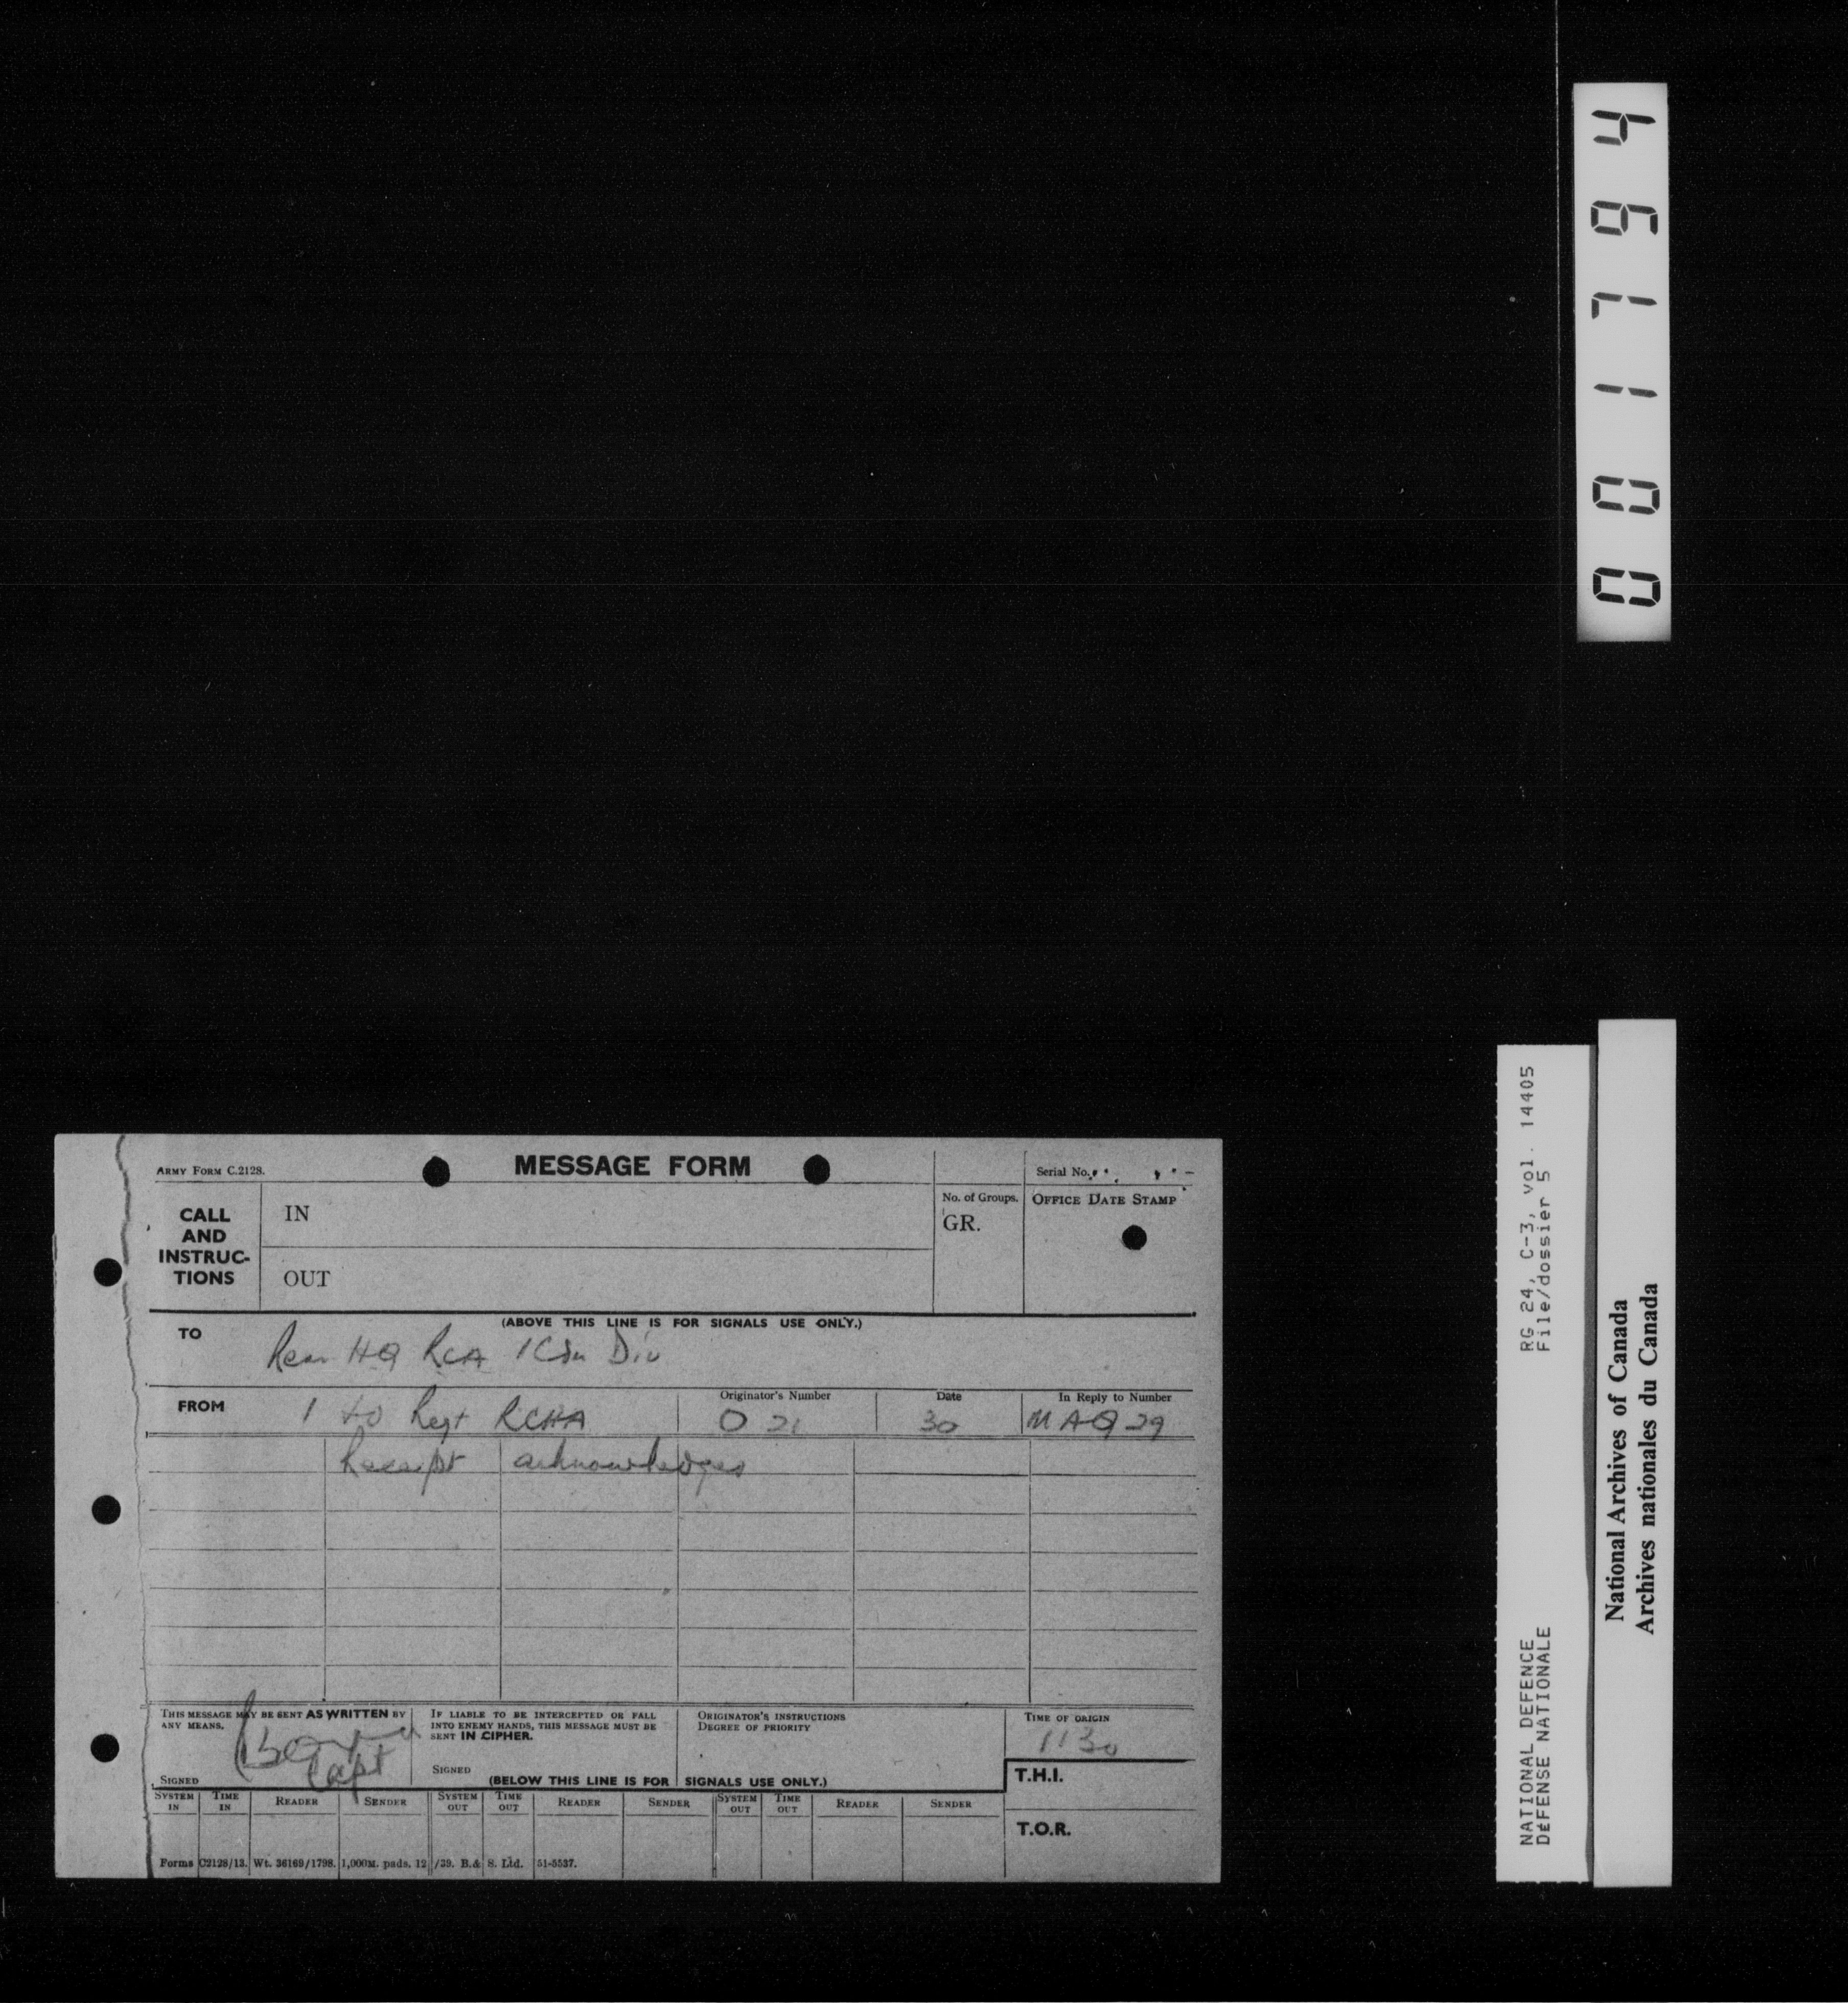 ARMY FORM C.2128.
MESSAGE FORM
Serial No.
CALL AND INSTRUC-TIONS
IN
OUT
No. of Groups.
GR.
OFFICE DATE STAMP
(ABOVE THIS LINE IS FOR SIGNALS USE ONLY.)
TO
Rear HQ RCA 1 Cdn Div
FROM
1 Fd Regt RCHA
Originator's Number
O 21
Date
30
In Reply to Number
MAQ 29
Receipt acknowledged
THIS MESSAGE MAY BE SENT AS WRITTEN BY
ANY MEANS.
Capt
SIGNED
IF LIABLE TO BE INTERCEPTED OR FALL
INTO ENEMY HANDS, THIS MESSAGE MUST BE
SENT IN CIPHER.
SIGNED
ORIGINATOR'S INSTRUCTIONS
DEGREE OF PRIORITY
TIME OF ORIGIN
1130
(BELOW THIS LINE IS FOR SIGNALS USE ONLY.)
T.H.I.
SYSTEM IN TIME IN READER SENDER SYSTEM OUT TIME OUT READER SENDER SYSTEM OUT TIME OUT READER SENDER
T.O.R.
Forms C2128/13. Wt. 36169/1798. 1,000M. pads. 12/39. B.& S. Ltd. 51-5537.
001794
NATIONAL DEFENCE RG 24, C-3, vol. 14405
DéFENSE NATIONALE File/dossier 5
National Archives of Canada
Archives nationales du Canada